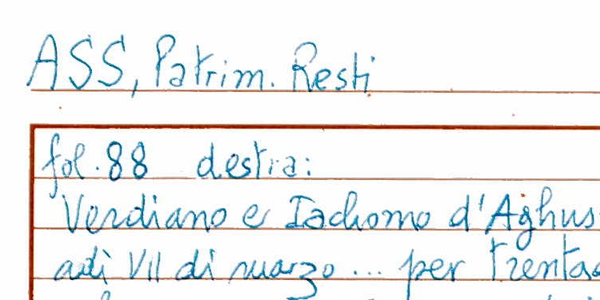 ASS, Patrim. Resti
fol. 88 destra:
Verdiano e Iachomo d'Aghus
adì VII di marzo ... per trenta